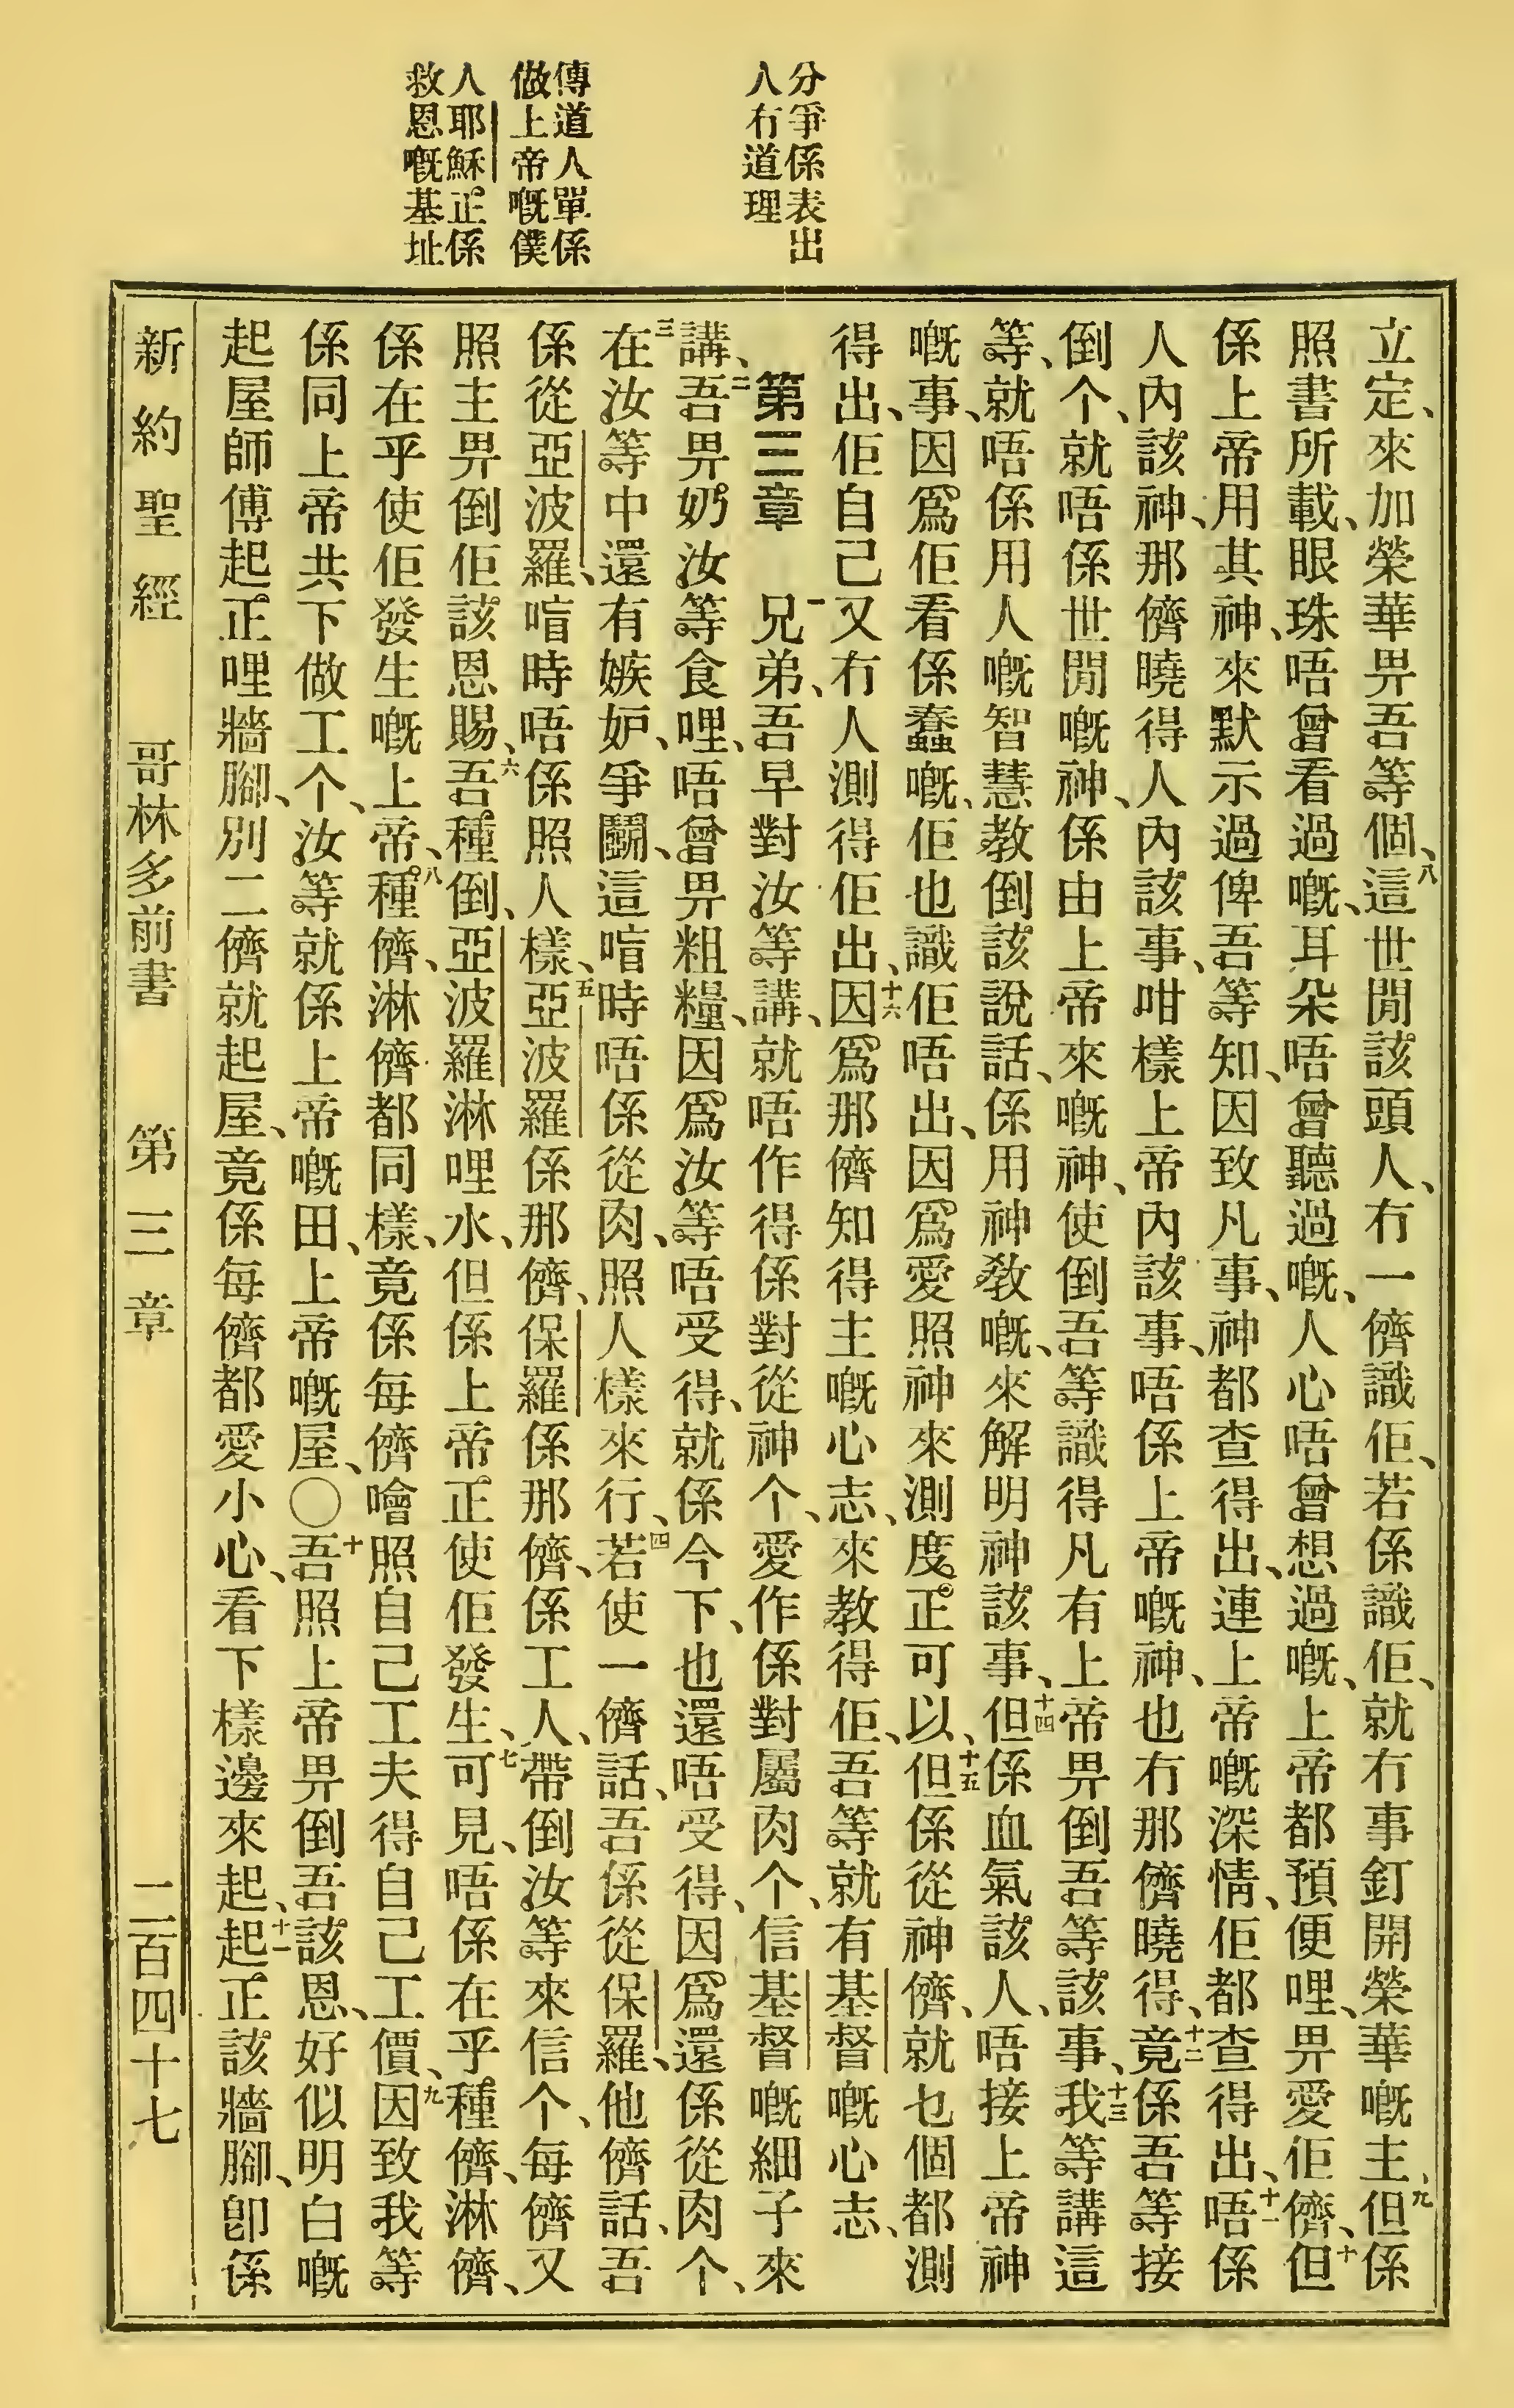 分爭係表出
人冇道理
傳道人單係
做上帝嘅僕
人耶穌正係
救恩嘅基址
立定、來加榮華畀吾等個、八這世間該頭人、冇一儕識佢、若係識佢、就冇事釘開榮華嘅主、九但係
照書所載、眼珠唔曾看過嘅、耳朵唔曾聽過嘅、人心唔曾想過嘅、上帝都預便哩、畀愛佢儕、十但
係上帝用其神、來默示過俾吾等知、因致凡事、神都查得出、連上帝嘅深情、佢都查得出、十一唔係
人內該神、那儕曉得人內該事、咁樣上帝內該事、唔係上帝嘅神、也冇那儕曉得、十二竟係吾等接
倒个、就唔係世間嘅神、係由上帝來嘅神、使倒吾等識得凡有上帝畀倒吾等該事、十三我等講這
等、就唔係用人嘅智慧教倒該說話、係用神教嘅、來解明神該事、十四但係血氣該人、唔接上帝神
嘅事、因爲佢看係蠢嘅、佢也識佢唔出、因爲愛照神來測度正可以、十五但係從神儕、就乜個都測
得出、佢自己又冇人測得佢出、十六因爲那儕知得主嘅心志、來教得佢、吾等就有基督嘅心志、
第三章 一兄弟、吾早對汝等講、就唔作得係對從神个、愛作係對屬肉个、信基督嘅細子來
講、二吾畀奶汝等食哩、唔曾畀粗糧、因爲汝等唔受得、就係今下、也還唔受得、因爲還係從肉个、
三在汝等中還有嫉妒、爭鬭、這㫝時唔係從肉、照人樣來行、四若使一儕話、吾係從保羅、他儕話、吾
係從亞波羅、㫝時唔係照人樣、五亞波羅係那儕、保羅係那儕、係工人、帶倒汝等來信个、每儕又
照主畀倒佢該恩賜、六吾種倒、亞波羅淋哩水、但係上帝正使佢發生、七可見、唔係在乎種儕、淋儕、
係在乎使佢發生嘅上帝、八種儕、淋儕都同樣、竟係每儕噲照自己工夫得自己工價、九因致我等
係同上帝共下做工个、汝等就係上帝嘅田、上帝嘅屋、〇十吾照上帝畀倒吾該恩、好似明白嘅
起屋師傅起正哩牆腳、別二儕就起屋、竟係每儕都愛小心、看下樣邊來起、十一起正該牆腳、卽係
新約聖經 哥林多前書 第三章 二百四十七